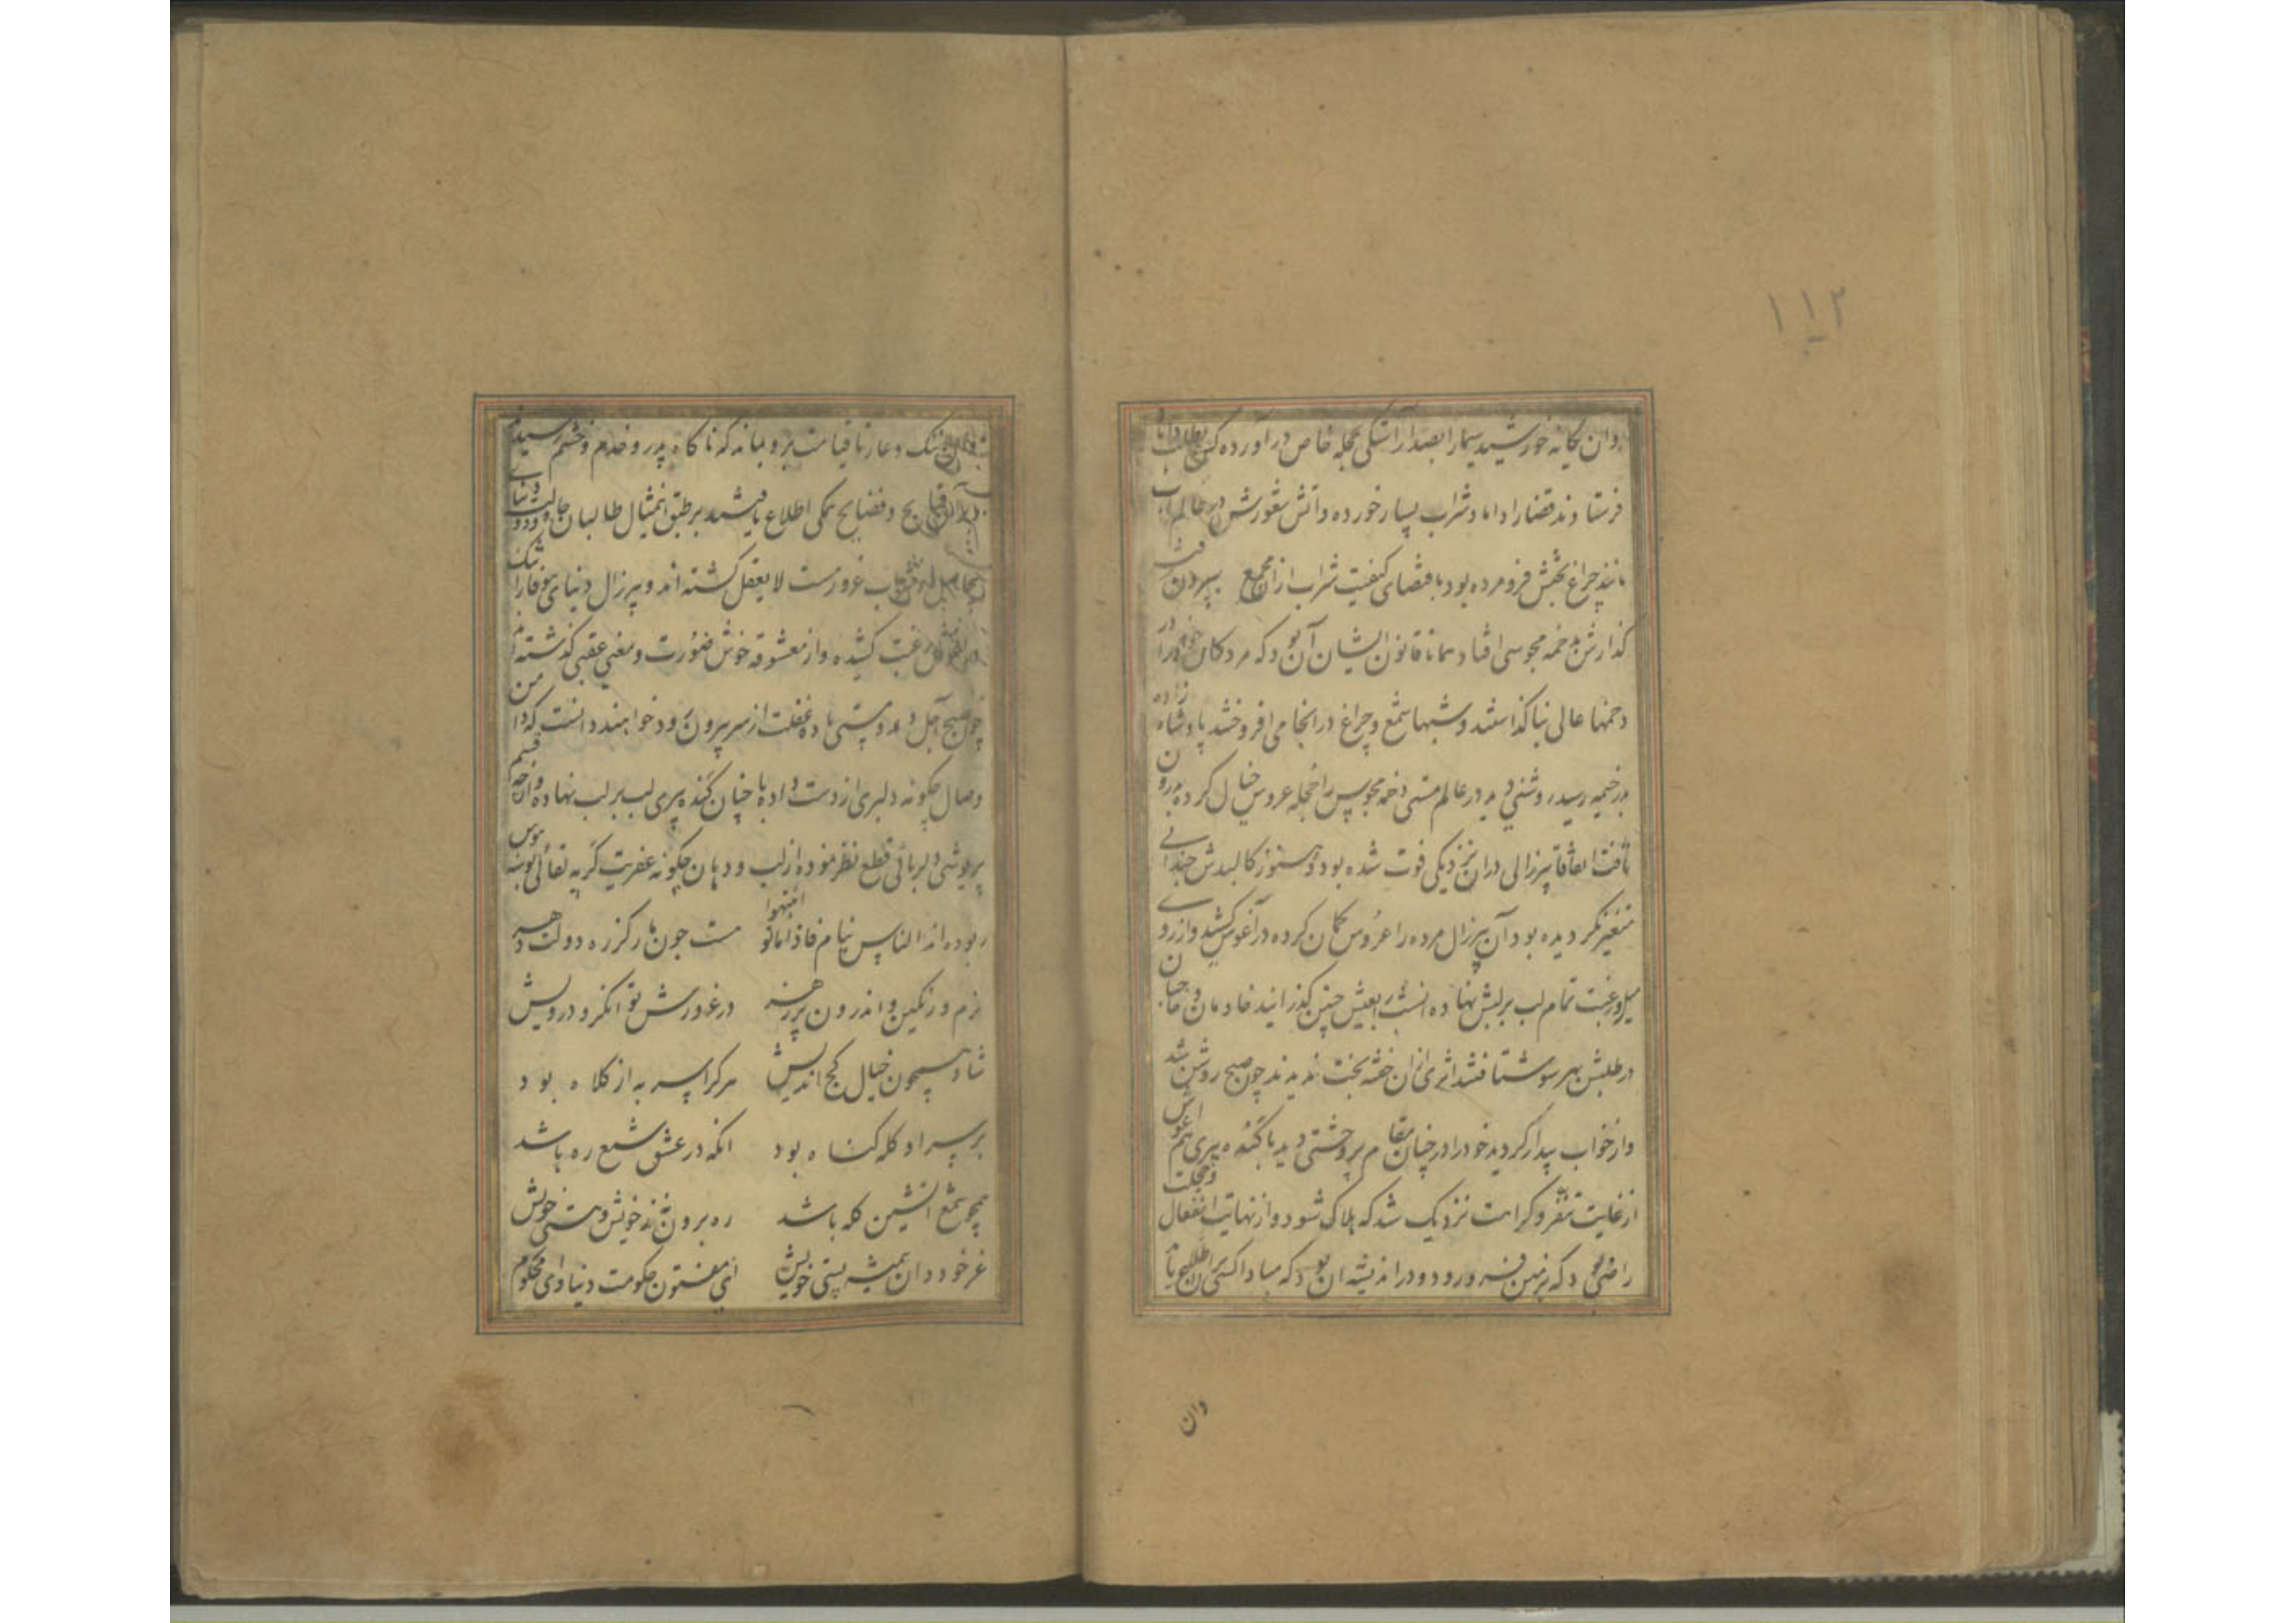 ۱۱۲
وان یکانه خورشید سیما را بصد آراستکی بحجله خاص در آورده کس بطلب داماد
فرستادند قضا را داماد شراب بسیار خورده و آتش شعورش در عالم آب
مانند چراغ بختش فرو مرده بود باقتضای کیفیت شراب از ان مجمع بیرون رفت
کذارش بدخمه مجوسی افتاد همانا قانون ایشان آن بود که مردکان خود را در
دخمها عالی بنا کذاشتند و شبها شمع و چراغ در انجا می افروختند پادشاه زاده
بدر خیمه رسید روشنی دید در عالم مستی دخمه مجوس را حجله عروس خیال کرده درون
تافت اتفاقا پیرزالی در ان نزدیکی فوت شده بود و هنوز کالبدش چندانی
متغیر نکردیده بود آن پیرزال مرده را عروس کمان کرده در آغوش کشید و از روی
میل و رغبت تمام لب بر لبش نهاده ان شب بعیش چنین کذرانید خادمان و حاجبان
در طلبش بهر سو شتافتند اثری از ان خفته بخت ندیدند چون صبح روشن شد
و از خواب بیدار کردید خود را در چنان مقام پر وحشتی دید با کنده پیری هم اغوش
از غایت تنفر و کراهت نزدیک شد که هلاک شود و از نهایت انفعال و خجلت
راضی بود که بزمین فرو رود و در اندیشه ان بود که مبادا کسی بر ان اطلاع یابد
وان
ننک و عار تا قیامت برو بماند که ناکاه پدر و خدم و حشم رسیدند
و فضایح همکی اطلاع یافتند بر طبق این مثال طالبان جاه و دولت دنیا
غرور مست لا یعقل کشته اند و پیرزال دنیای بیوفا را تنک
رغبت کشیده و از معشوقه خوش صورت و معنی عقبی کذشته اند
چون صبح اجل دمد و مستی باده غفلت از سر بیرون رود خواهند دانست که دامن
وصال چکونه دلبری از دست داده با چنان کنده پیری لب بر لب نهاده و از چه قسم
پریوشی دلربائی قطع نظر نموده از لب و دهان چکونه عفریت کریه لقائی بوسه هوس
ربوده اند الناس نیام فاذا ماتوا انتبهوا مست چون مار کرزه دولت دهر
نرم و رنکین و اندرون پر زهر در غرورش توانکر و درویش
شاد همچون خیال کج اندیش هر کرا سر به از کلاه بود
بر سر او کله کناه بود انکه در عشق شمع ره باشد
همچو شمع اتشین کله باشد ره برون نه ز خویش و هستی خویش
غر خود دان همیشه پستی خویش ای مفتون حکومت دنیا و ای محکوم